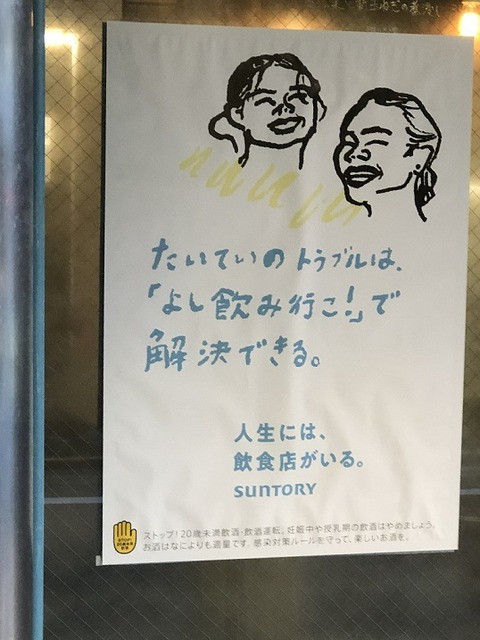 たいていのトラブルは、
「よし飲み行こ!」で
解決できる。
人生には、
飲食店がいる。
SUNTORY
ストップ!20歳未満飲酒・飲酒運転。妊娠中や授乳期の飲酒はやめましょう。
お酒はなによりも適量です。感染対策ルールを守って、楽しいお酒を。